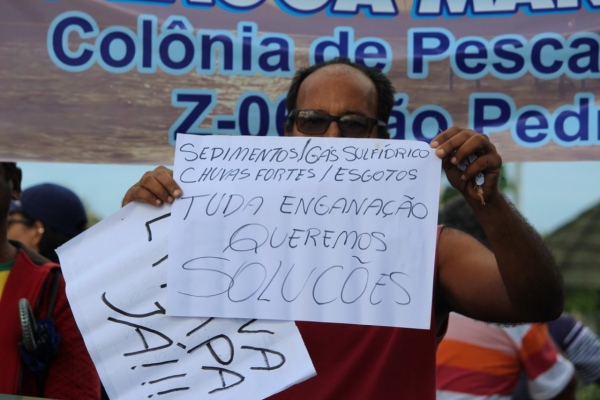 Colônia de Pesca
Z-0 ão Ped
SEDIMENTOS/GÁS SULFÍDRICO
CHUVAS FORTES/ESGOTOS
TUDA ENGANAÇÃO
QUEREMOS
SOLUCÕES
JÁ!!!